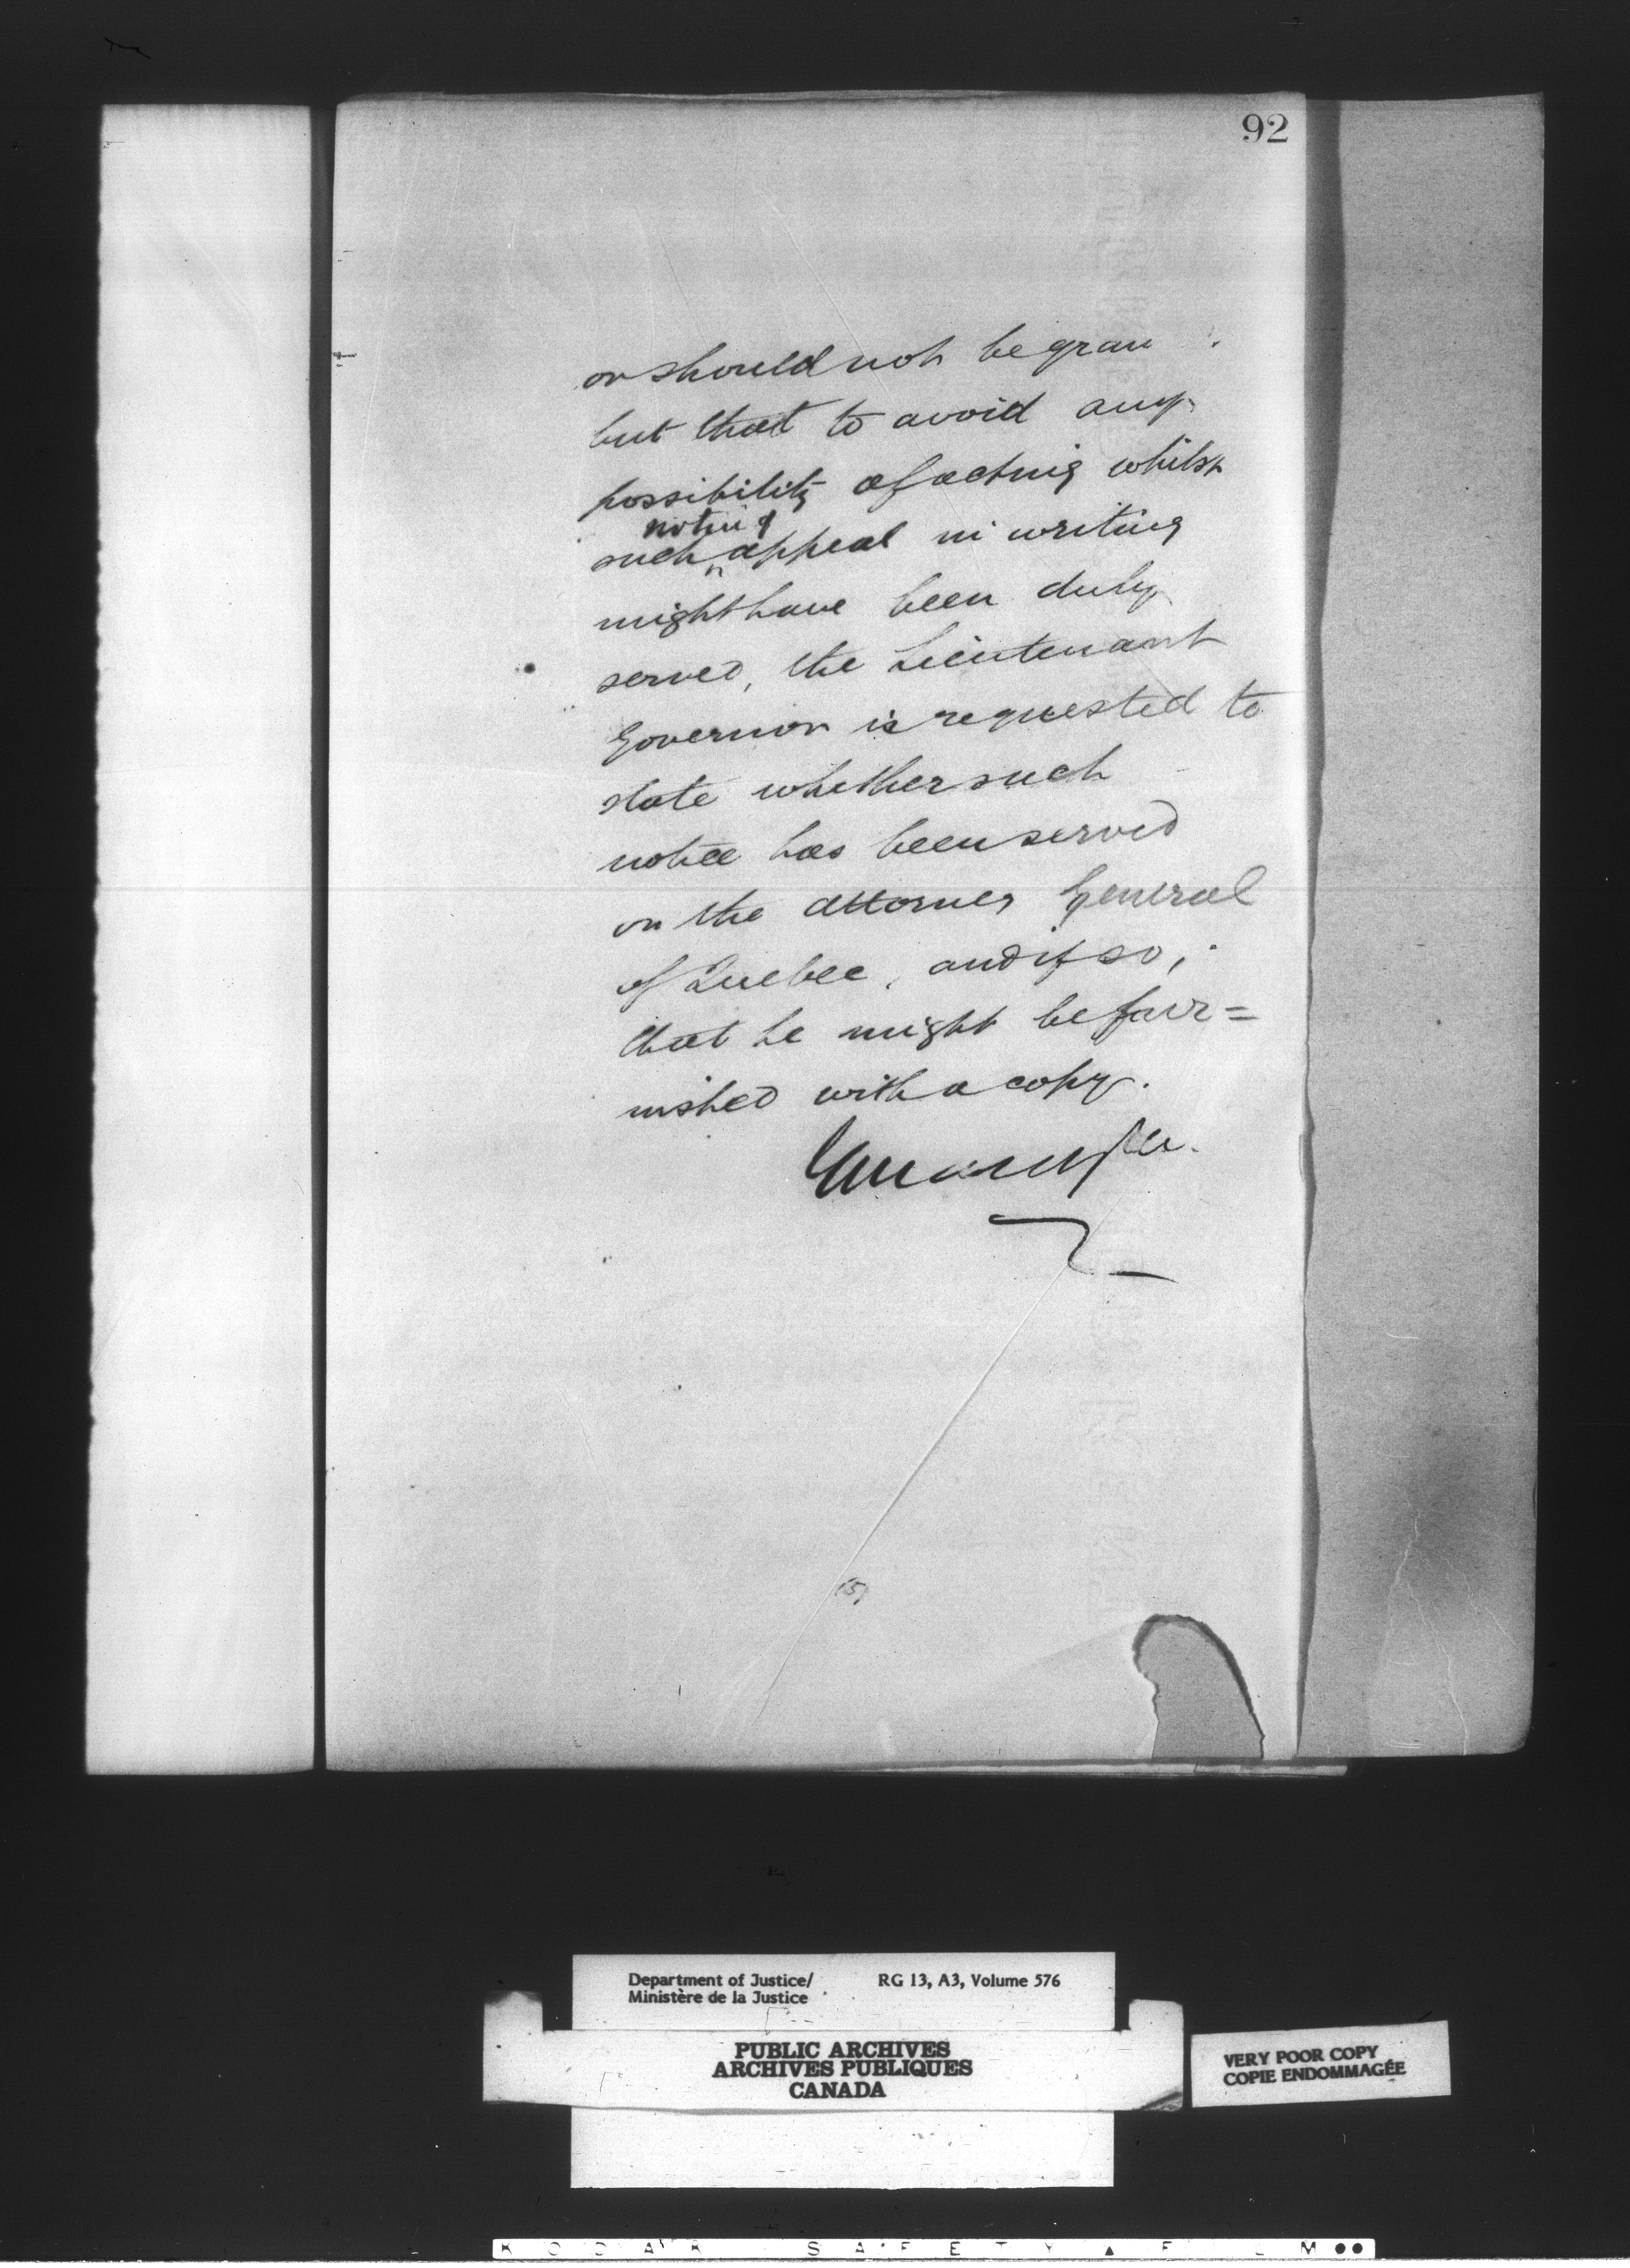 92
or should not be gran
but that to avoid any
possibility of acting whilst
notice of
such appeal in writing
might have been duly
served, the Lieutenant
Governor is requested to
state whether such
notice has been served
on the Attorney General
of Quebec, and if so,
that he might be fur=
nished with a copy.
(5)
Department of Justice/ RG 13, A3, Volume 576
Ministère de la Justice
PUBLIC ARCHIVES
ARCHIVES PUBLIQUES
CANADA
VERY POOR COPY
COPIE ENDOMMAGÉE
KODAK SAFETY ▲ FILM ●●